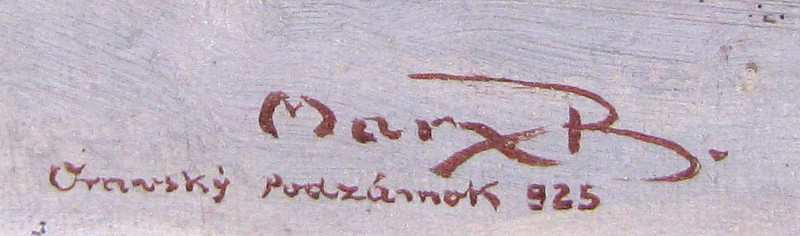 Marx B.
Oravský Podzámok 925